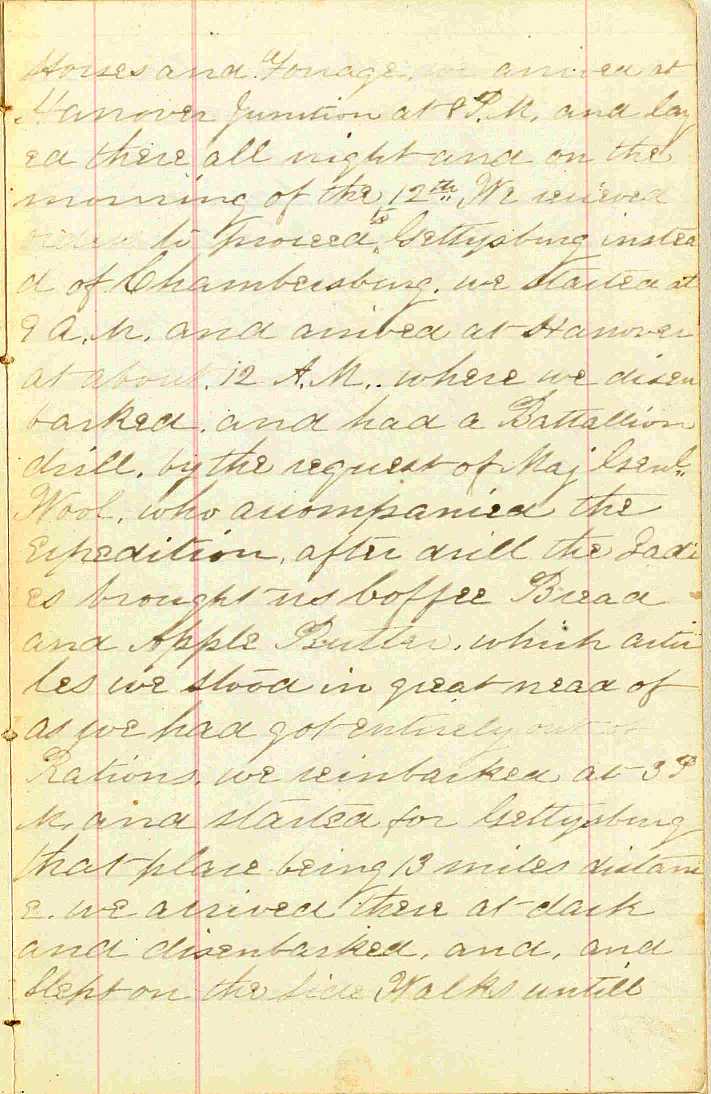 Horses and Forage, we arrived at
Hanover Junction at 8 P.M. and lay
ed there all night and on the
morning of the 12th, We recieved
orders to proceed to Gettysburg instea
d of Chambersburg. we started at
9 A.M. and arrived at Hanover
at about 12 A.M.. where we disen
barked, and had a Battallion
drill. by the request of Maj Genl.
Wool. who accompanied the
Expedition, after drill the Ladi
es brought us Coffee Bread
and Apple Butter, which artic
les we stood in great nead of
as we had got entirely out of
Rations. we reinbarked at 3 P
M. and started for Gettysburg
that place being 13 miles distanc
e. we arrived there at dark
and disenbarked, and, and
Slept on the Side Walks untill